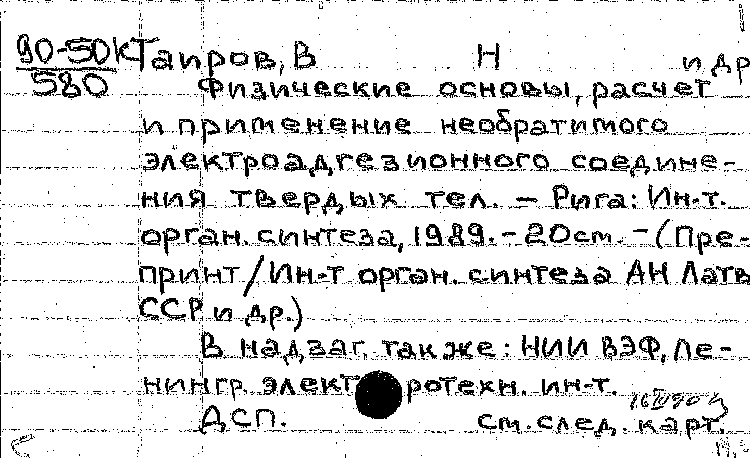 90-50К Таиров, В Н и др
580
Физические основы, расчет
и применение необратимого
электроадгезионного соедине-
ния твердых тел. - Рига: Ин-т.
орган. синтеза, 1989. - 20см. - (Пре-
принт / Ин-т орган. синтеза АН Латв
ССР и др.)
В надзаг. также: НИИ ВЭФ, Ле-
нингр. электротехн. ин-т.
ДСП. см. след. карт.